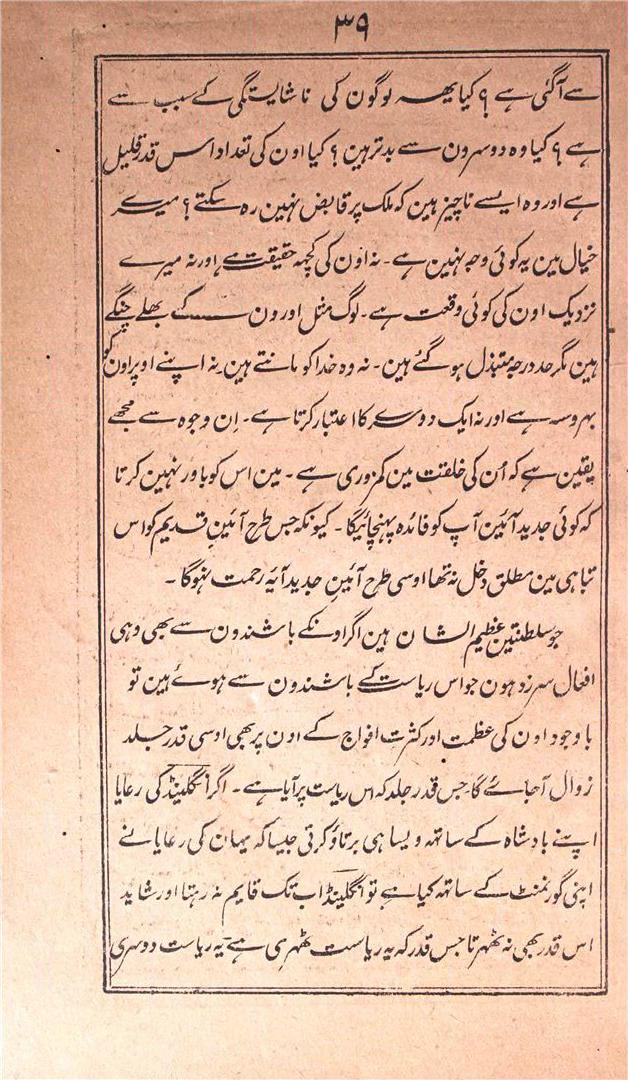 ۳۹
سے آگئی ہے ؟ کیا یہہ لوگون کی ناشایستگی کے سبب سے
ہے ؟ کیا وہ دوسرون سے بدتر ہین ؟ کیا اون کی تعداد اس قدر قلیل
ہے اور وہ ایسے ناچیز ہین کہ ملک پر قابض نہین رہ سکتے ؟ میرے
خیال مین یہ کوئی وجہ نہین ہے ۔ نہ اون کی کچہہ حقیقت ہے اور نہ میرے
نزدیک اون کی کوئی وقعت ہے ۔ لوگ مثل اورون کے بھلے چنگے
ہین مگر حد درجہ مبتذل ہو گئے ہین ۔ نہ وہ خدا کو مانتے ہین نہ اپنے اوپر اون کو
بہروسہ ہے اور نہ ایک دوسرے کا اعتبار کرتا ہے ۔ اِن وجوہ سے مجھے
یقین ہے کہ اُن کی خلقت مین کمزوری ہے ۔ مین اس کو باور نہین کرتا
کہ کوئی جدید آئین آپ کو فائدہ پہنچائیگا ۔ کیونکہ جس طرح آئینِ قدیم کو اس
تباہی مین مطلق دخل نہ تھا اوسی طرح آئینِ جدید آیۂ رحمت نہوگا ۔
جو سلطنتین عظیم الشان ہین اگر اونکے باشندون سے بھی وہی
افعال سرزد ہون جو اس ریاست کے باشندون سے ہوئے ہین تو
باوجود اون کی عظمت اور کثرت افواج کے اون پر بھی اوسی قدر جلد
زوال آجائے گا جس قدر جلد کہ اس ریاست پر آیا ہے ۔ اگر انگلینڈ کی رعایا
اپنے بادشاہ کے ساتھہ ویسا ہی برتاؤ کرتی جیسا کہ یہان کی رعایا نے
اپنی گورنمنٹ کے ساتھہ کیا ہے تو انگلینڈ اب تک قایم نہ رہتا اور شاید
اس قدر بھی نہ ٹھہرتا جس قدر کہ یہ ریاست ٹھہری ہے یہ ریاست دوسری